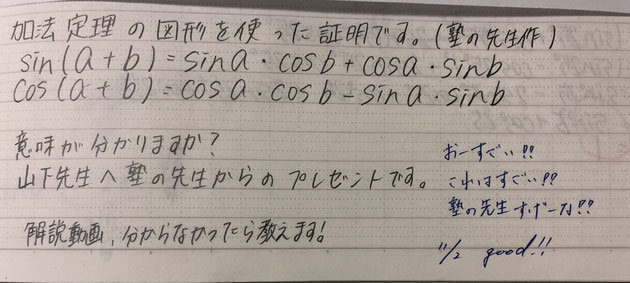 加法定理の図形を使った証明です。(塾の先生作)
sin(a+b)=sina・cosb+cosa・sinb
cos(a+b)=cosa・cosb-sina・sinb
意味が分かりますか?
山下先生へ塾の先生からのプレゼントです。
解説動画、分からなかったら教えます!
おーすごい!!
これはすごい!!
塾の先生すげーな!!
11/2 good!!